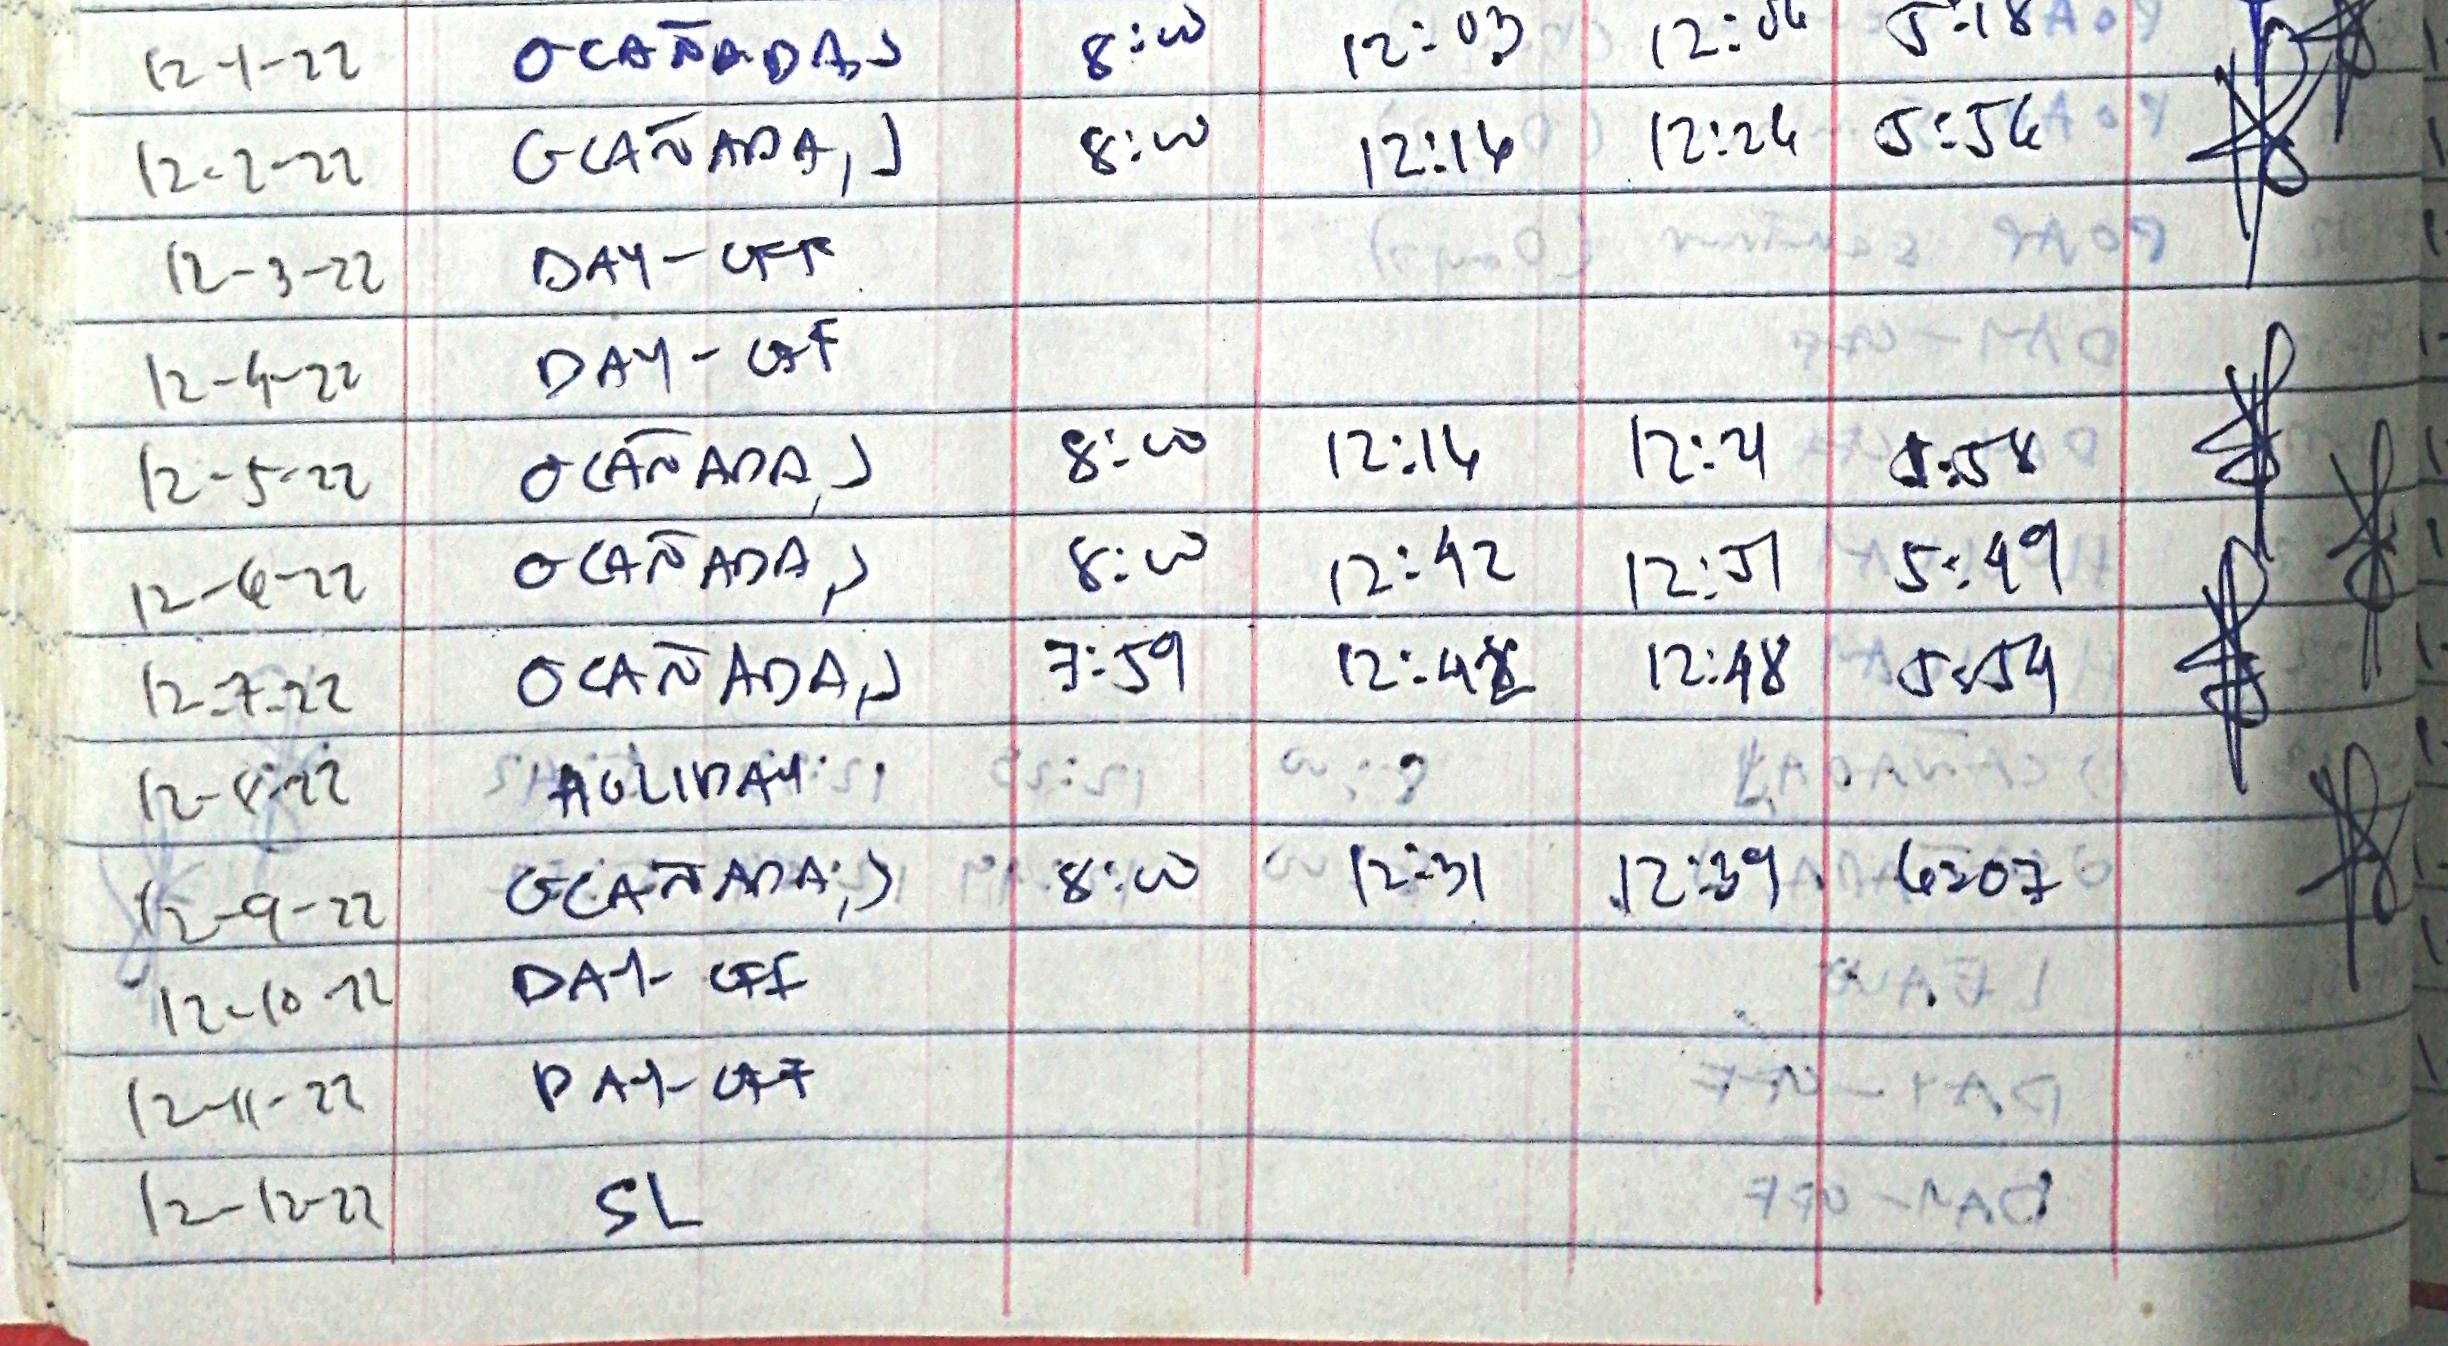 12-1-22 OCAÑADA,J 8:00 12:03 12:06 5:18
12-2-22 OCAÑADA,J 8:00 12:16 12:26 5:56
12-3-22 DAY-OFF
12-4-22 DAY-OFF
12-5-22 OCAÑADA,J 8:00 12:16 12:21 5:58
12-6-22 OCAÑADA,J 8:00 12:42 12:51 5:49
12-7-22 OCAÑADA,J 7:59 12:48 5:54
12-8-22 HOLIDAY
12-9-22 OCAÑADA,J 8:00 12:31 12:39 6:07
12-10-22 DAY-OFF
12-11-22 DAY-OFF
12-12-22 SL